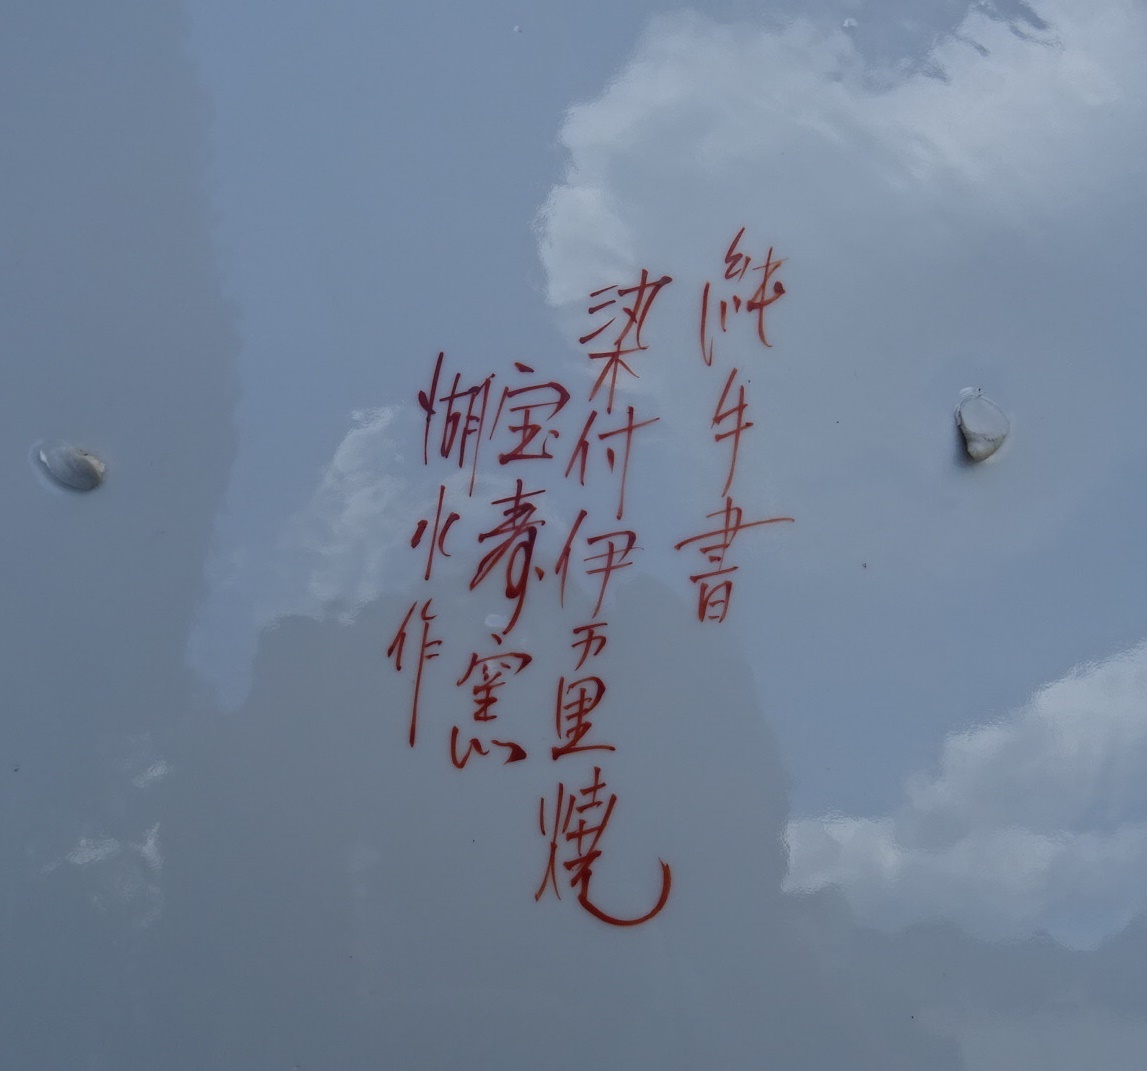 純手書
染付伊万里燒
宝寿窯
湖水作